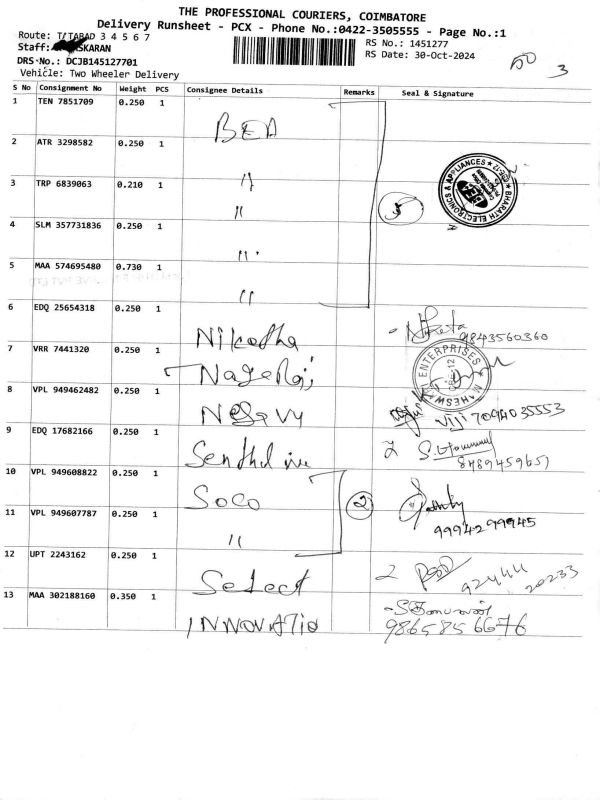 THE PROFESSIONAL COURIERS, COIMBATORE
Delivery Runsheet - PCX - Phone No.:0422-3505555 - Page No.:1
Route: T/TABAD 3 4 5 6 7
RS No.: 1451277
Staff: SKARAN
RS Date: 30-Oct-2024
DRS No.: DCJB145127701
3
Vehicle: Two Wheeler Delivery
S No Consignment No Weight PCS Consignee Details Remarks Seal & Signature
1 TEN 7851709 0.250 1 BEA
2 ATR 3298582 0.250 1 "
3 TRP 6839063 0.210 1 " 5
BHARATH ELECTRONICS & APPLIANCES
4 SLM 357731836 0.250 1 "
5 MAA 574695480 0.730 1 "
6 EDQ 25654318 0.250 1 Nikeatha
9843560360
7 VRR 7441320 0.250 1 Nageraj
MAHESWARI ENTERPRISES
8 VPL 949462482 0.250 1
viji 7094035553
9 EDQ 17682166 0.250 1
8489459651
10 VPL 949608822 0.250 1 Soco 2
11 VPL 949607787 0.250 1 "
9994299945
12 UPT 2243162 0.250 1 Select
92444 20233
13 MAA 302188160 0.350 1 INNOVATIO
9865856676